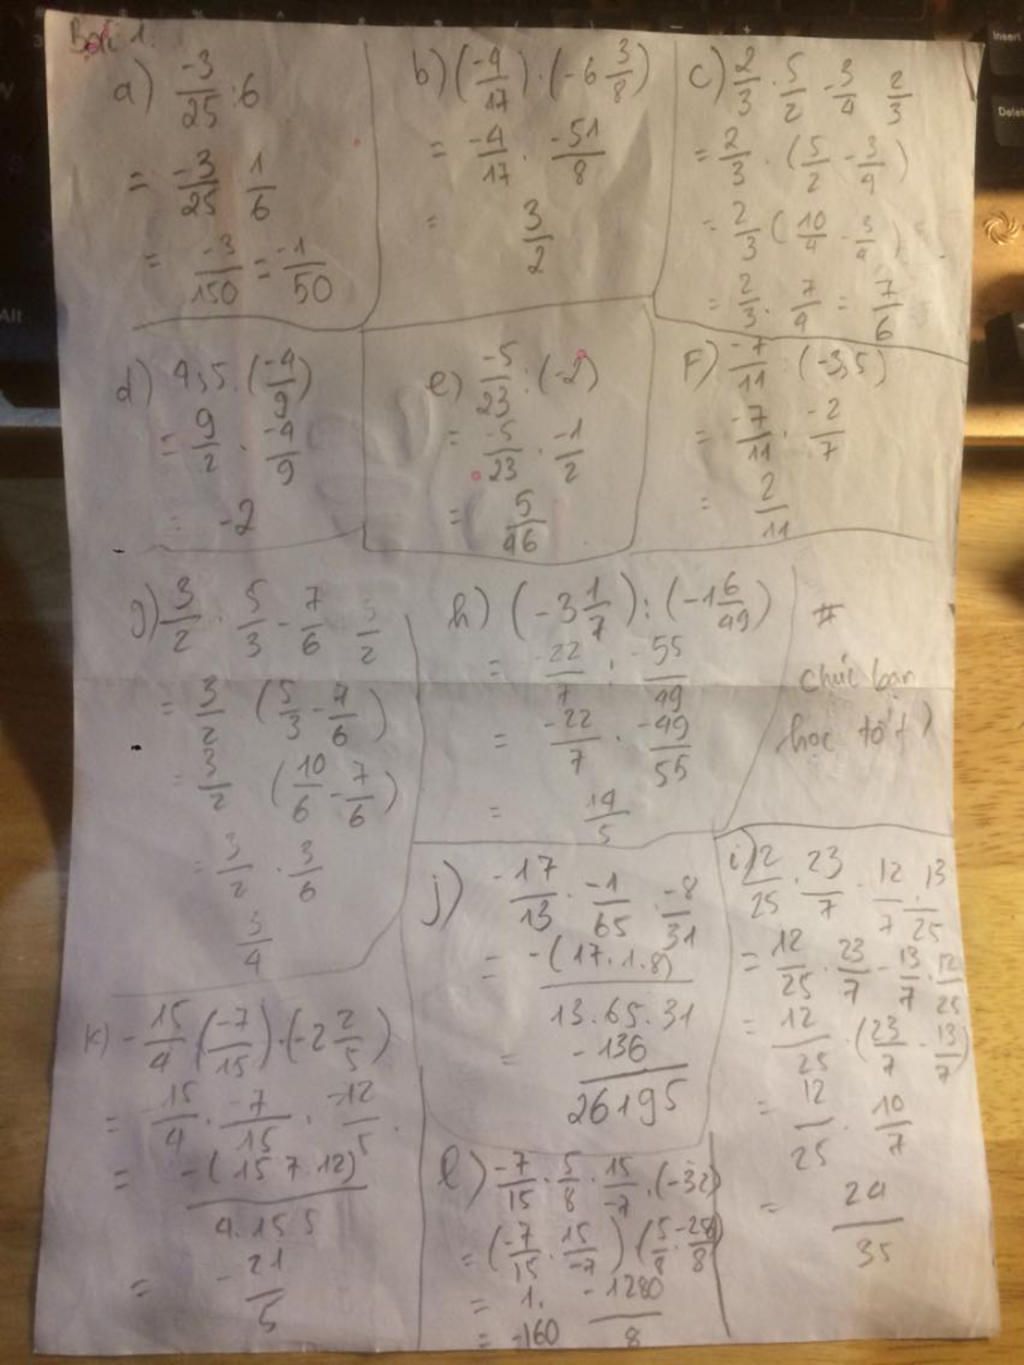 Bài 1.
a) -3/25 : 6
= -3/25 . 1/6
= -3/150 = -1/50
b) (-4/17) . (-6 3/8)
= -4/17 . -51/8
= 3/2
c) 2/3 . 5/2 - 3/4 2/3
= 2/3 . (5/2 - 3/4)
= 2/3 (10/4 - 3/4)
= 2/3 . 7/4 = 7/6
d) 4,5 . (-4/9)
= 9/2 . -4/9
= -2
e) -5/23 : (-2)
= -5/23 . -1/2
= 5/46
F) -7/11 : (-3,5)
= -7/11 . -2/7
= 2/11
g) 3/2 . 5/3 - 7/6 3/2
= 3/2 (5/3 - 7/6)
= 3/2 (10/6 - 7/6)
= 3/2 . 3/6
3/4
h) (-3 1/7) : (-1 6/49)
= -22/7 : -55/49
= -22/7 . -49/55
= 14/5
#
chúc bạn
học tốt)
i) 12/25 . 23/7 - 12/7 . 13/25
= 12/25 . 23/7 - 13/7 . 12/25
= 12/25 . (23/7 - 13/7)
= 12/25 . 10/7
= 24/35
j) -17/13 . -1/65 . -8/31
= -(17.1.8)/13.65.31
= -136/26195
k) -15/4 . (-7/15) . (-2 2/5)
= -15/4 . -7/15 . -12/5 .
= -(15 7.12)/4.15 5
= -21/5
l) -7/15 . 5/8 . 15/-7 . (-32)
= (-7/15 . 15/-7) (5/8 . -256/8)
= 1. -1280/8
= -160